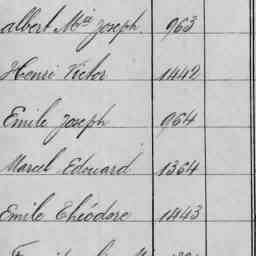 albert Mie Joseph. 963
Henri Victor 1442
Emile Joseph 964
Marcel Edouard 1364
Emile Théodore 1443